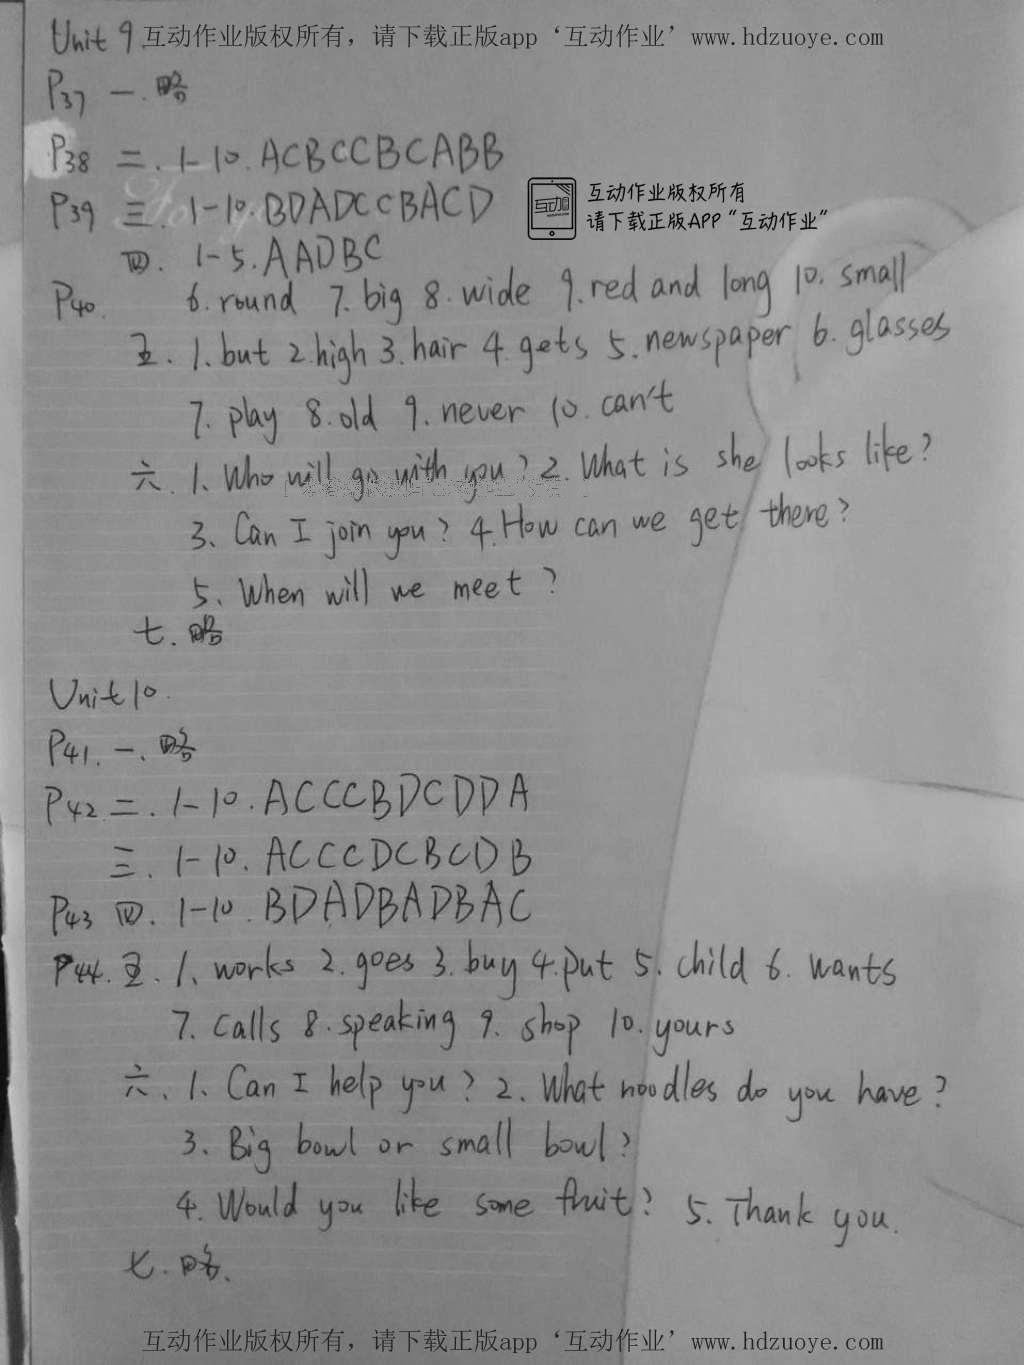 互动作业版权所有，请下载正版app‘互动作业’www.hdzuoye.com
Unit 9
P37 一. 略
P38 二. 1-10. ACBCCBCABB
P39 三. 1-10. BDADCCBACD
互动作业版权所有
请下载正版APP“互动作业”
四. 1-5. AADBC
P40. 6. round 7. big 8. wide 9. red and long 10. small
五. 1. but 2. high 3. hair 4. gets 5. newspaper 6. glasses
7. play 8. old 9. never 10. can't
六. 1. Who will go with you? 2. What is she looks like?
3. Can I join you? 4. How can we get there?
5. When will we meet?
七. 略
Unit 10.
P41. 一. 略
P42 二. 1-10. ACCCBDCDDA
三. 1-10. ACCCDCBCDB
P43 四. 1-10. BDADBADBAC
P44. 五. 1. works 2. goes 3. buy 4. put 5. child 6. wants
7. calls 8. speaking 9. shop 10. yours
六. 1. Can I help you? 2. What noodles do you have?
3. Big bowl or small bowl?
4. Would you like some fruit? 5. Thank you.
七. 略.
互动作业版权所有，请下载正版app‘互动作业’www.hdzuoye.com